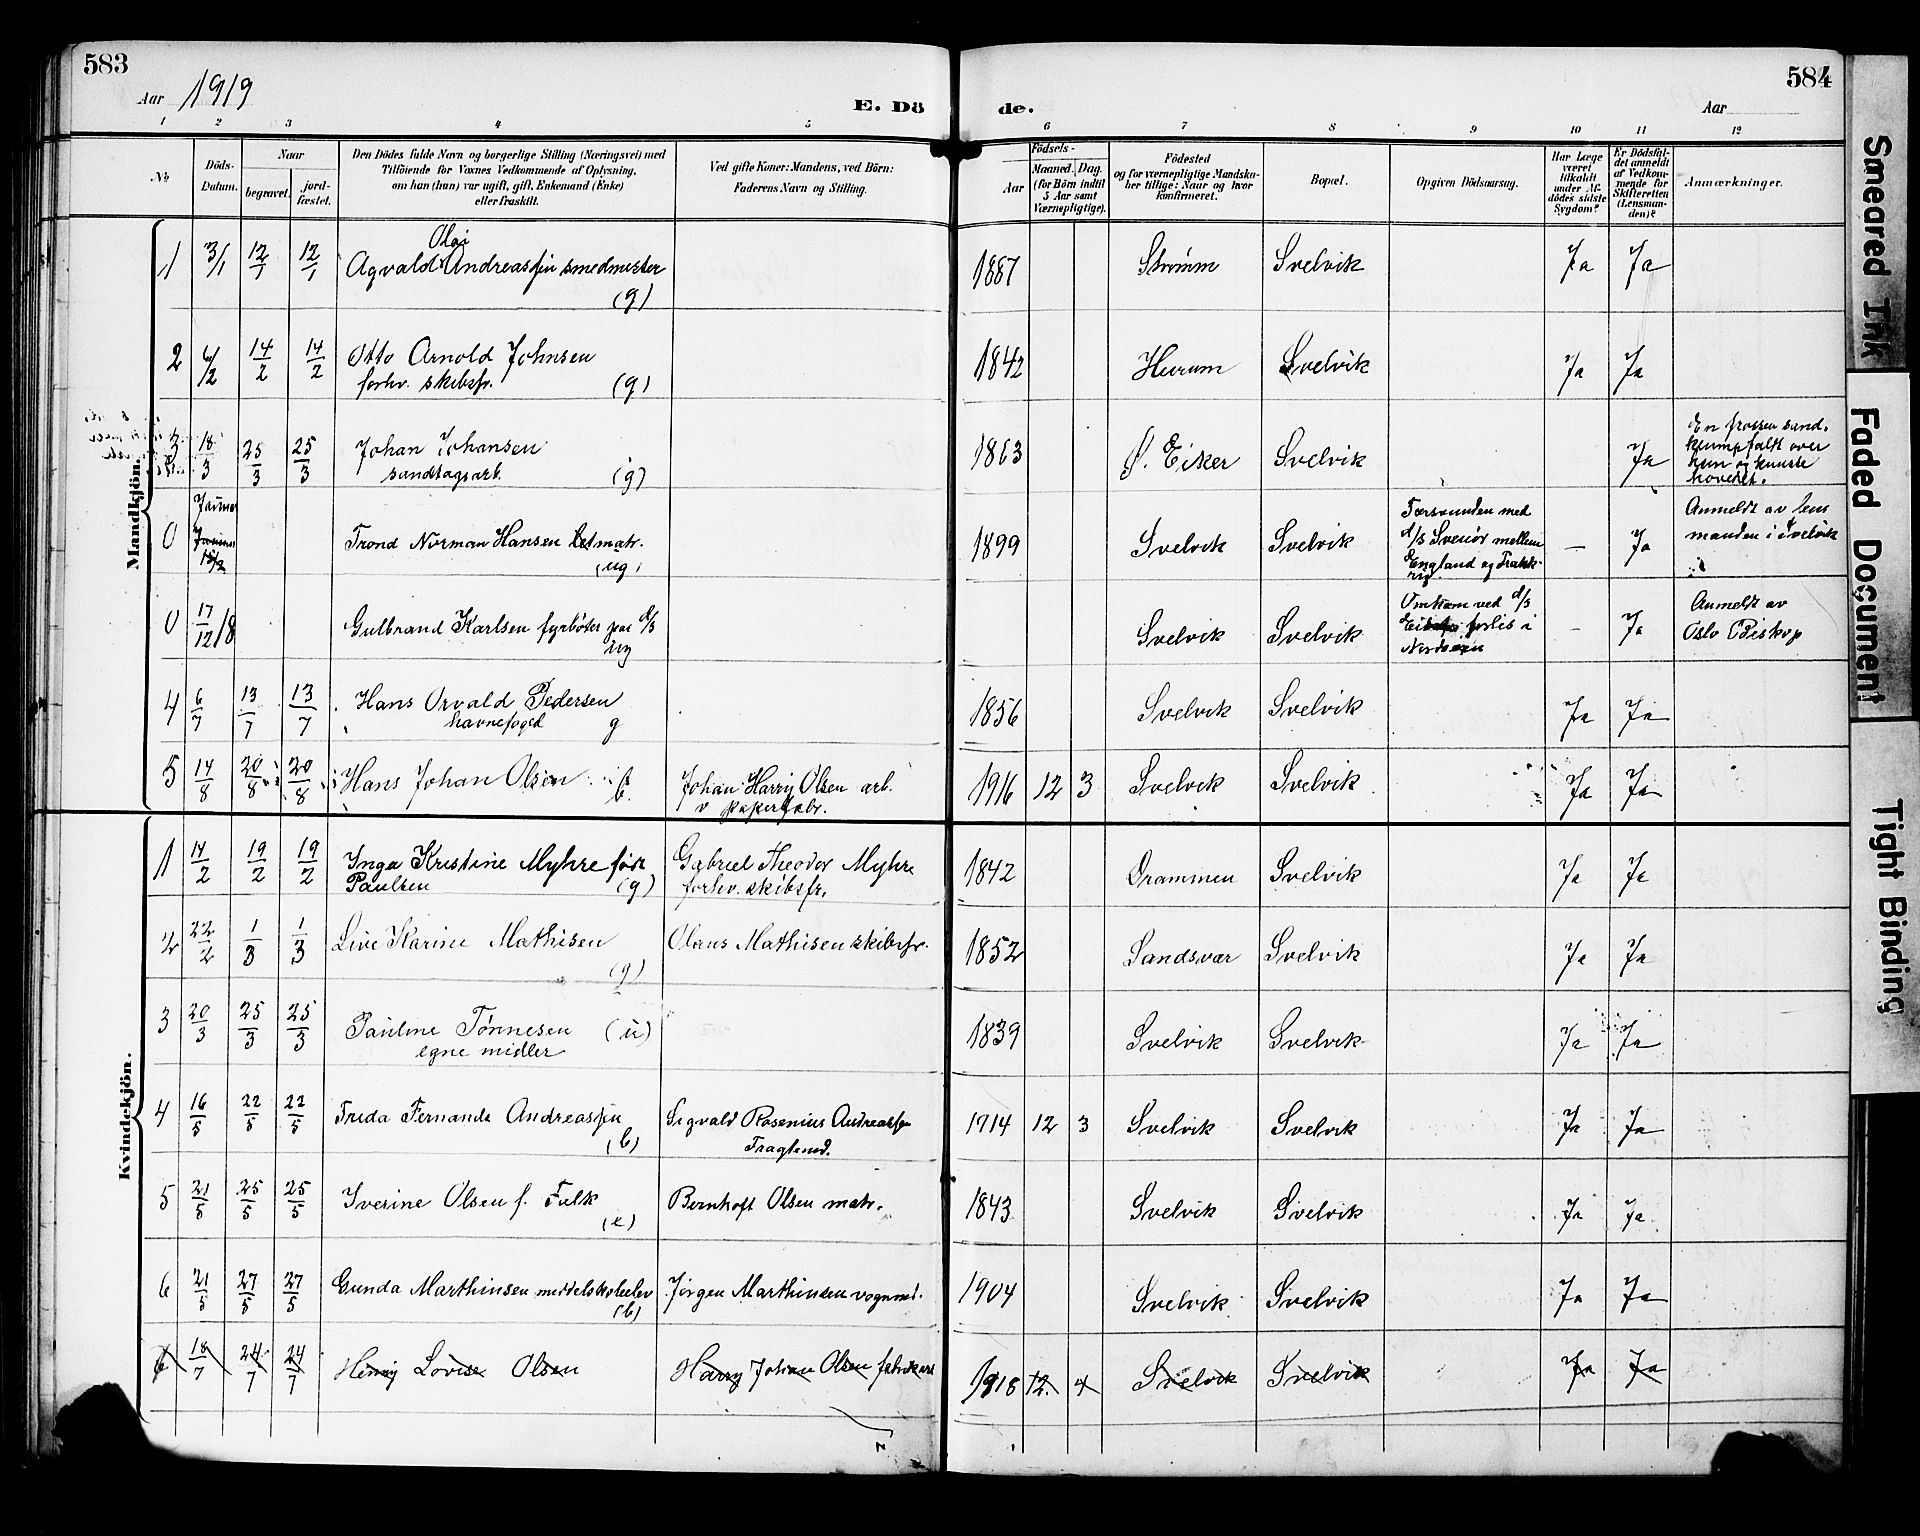 583
584
Aar 1919
E. Dö
de.
Aar
1 2 3 4 5 6 7 8 9 10 11 12
No
Döds-Datum.
Naar
begravet.
jordfæstet.
Den Dödes fulde Navn og borgerlige Stilling (Næringsvei) med
Tilföiende for Voxnes Vedkommende af Oplysning,
om han (hun) var ugift, gift, Enkemand (Enke)
eller fraskilt.
Ved gifte Koner: Mandens, ved Börn:
Faderens Navn og Stilling.
Födsels-
Aar
Maaned. Dag.
(for Börn indtil
5 Aar samt
Værnepligtige).
Födested
og for værnepligtige Mandska-
ber tillige: Naar og hvor
konfirmeret.
Bopæl.
Opgiven Dödsaarsag.
Har Læge
været
tilkaldt
under Af-
dödes sidste
Sygdom?
Er Dödsfal-
det anmeldt
af Vedkom-
mende for
Skifteretten
(Lensman-
den)?
Anmærkninger.
Mandkjön.
1 3/1 12/1 12/1 Agvald Olai Andreassen smedmester (g) 1887 Strømm Svelvik Ja Ja
2 6/2 14/2 14/2 Otto Arnold Johnsen
forhv. skibsfr. (g) 1842 Hurum Svelvik Ja Ja
3 18/3 25/3 25/3 Johan Johansen
sandtagsarb. (g) 1863 Ø. Eiker Svelvik Ja
En frossen sand-
klump faldt over
ham og knuste
hovedet.
0 Trond Norman Hansen Letmatr.
(ug) 1899 Svelvik Svelvik
Forsvunden med
d/s Svenör mellem
England og Frank-
rig
– Ja
Anmeldt av lens
manden i Svelvik
0 17/12/8 Gulbrand Karlsen fyrbøter paa d/s
ug Svelvik Svelvik
Omkom ved d/s
forlis i
Nordsøen
– Ja
Anmeldt av
Oslo Biskop
4 6/7 13/7 13/7 Hans Osvald Pedersen
havnefoged g 1856 Svelvik Svelvik Ja Ja
5 14/8 20/8 20/8 Hans Johan Olsen b. Johan Harry Olsen arb.
v papirfabr. 1916 12 3 Svelvik Svelvik Ja Ja
Kvindekjön.
1 14/2 19/2 19/2 Inga Kristine Myhre født
Paulsen (g) Gabriel Theodor Myhre
forhv. skibsfr. 1842 Drammen Svelvik Ja Ja
2 22/2 1/3 1/3 Live Karine Mathisen
(g) Olaus Mathisen skibsfr. 1852 Sandsvær Svelvik Ja Ja
3 20/3 25/3 25/3 Pauline Tønnesen (u)
egne midler 1839 Svelvik Svelvik Ja Ja
4 16/5 22/5 22/5 Frida Fernanda Andreassen
(b) Sigvald Rosenius Andreassen
1914 12 3 Svelvik Svelvik Ja Ja
5 21/5 25/5 25/5 Iverine Olsen f. Falk
(e) Bernhoft Olsen matr. 1843 Svelvik Svelvik Ja Ja
6 21/5 27/5 27/5 Gunda Marthinsen middelskoleelev
(b) Jörgen Marthinsen vognmd. 1904 Svelvik Svelvik Ja Ja
6 18/7 24/7 24/7 Henny Lovise Olsen Harry Johan Olsen fabrikarb 1918 12. 4 Svelvik Svelvik Ja Ja
Smeared Ink
Faded Document
Tight Binding